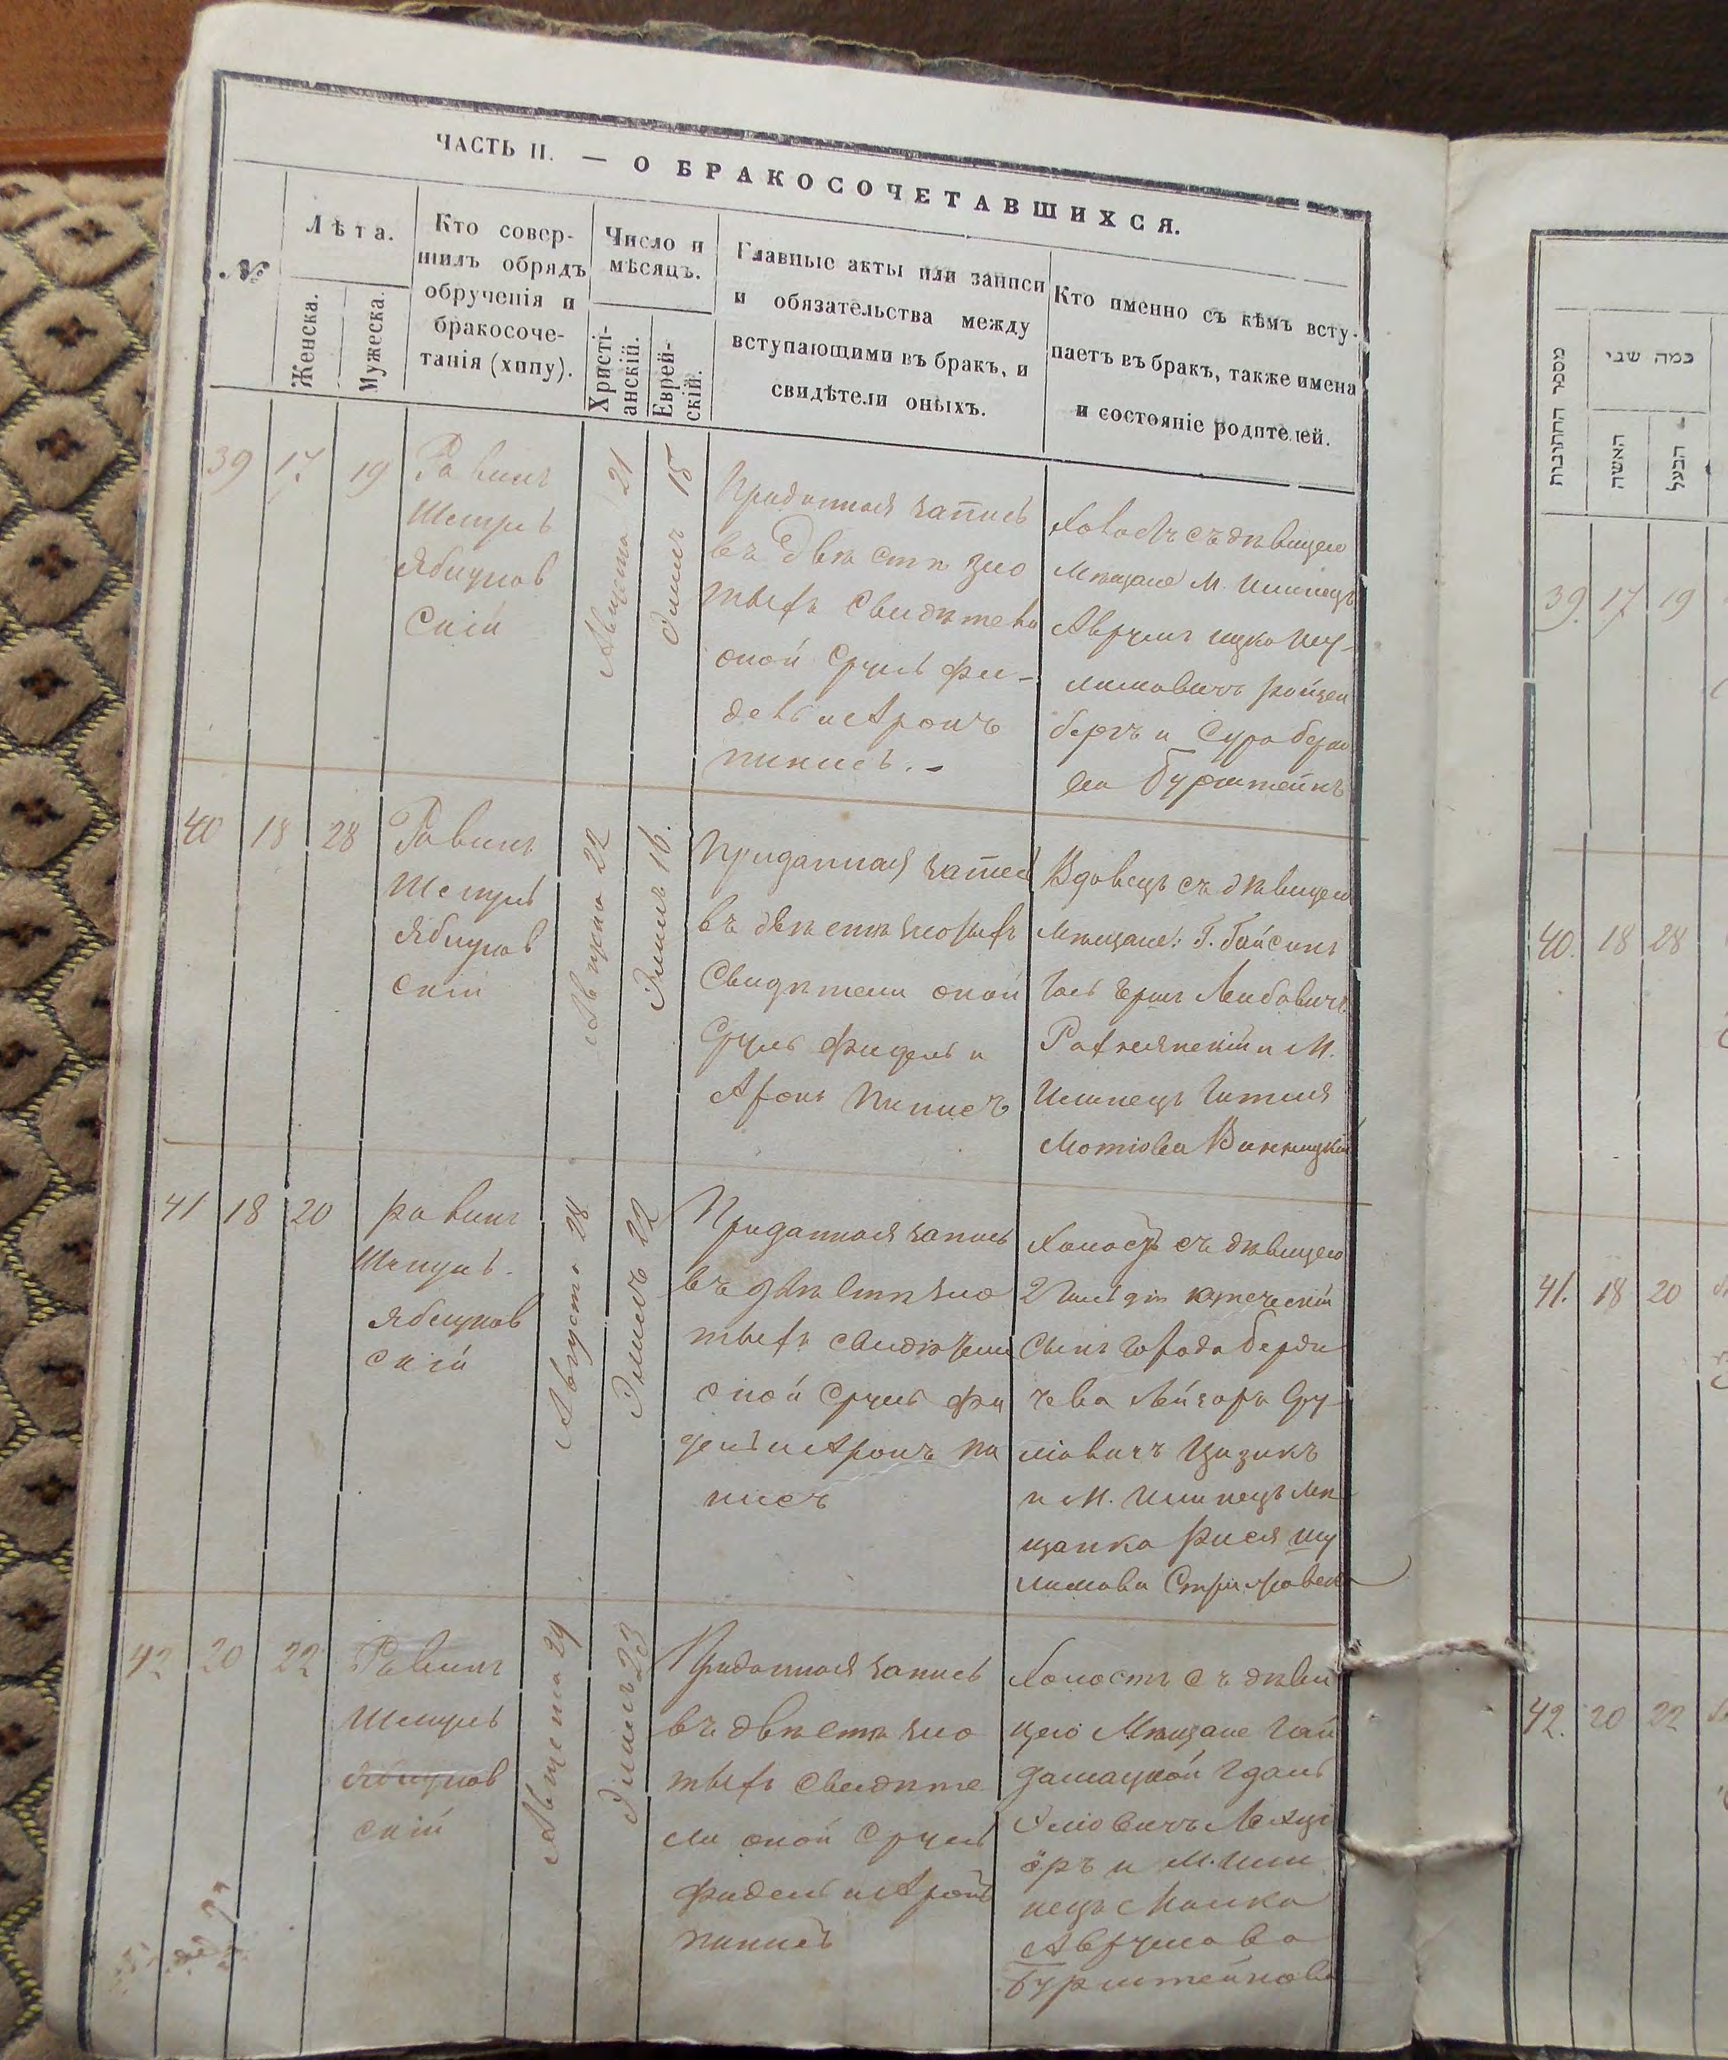 ЧАСТЬ II. — О БРАКОСОЧЕТАВШИХСЯ.
№
Лѣта.
Женска.
Мужеска.
Кто совер-
шилъ обрядъ
обрученія и
бракосоче-
танія (хипу).
Число и
мѣсяцъ.
Христі-
анскій.
Еврей-
скій.
Главные акты или записи
и обязательства между
вступающими въ бракъ, и
свидѣтели оныхъ.
Кто именно съ кѣмъ всту-
паетъ въ бракъ, также имена
и состояніе родителей.
39
17
19
Равинъ
Шмуль
Яблунов
скій
Августа 21
Элмлъ 15
Приданная запись
въ двѣ сти зло
тыхъ свидѣтели
оной Сруль Фи-
дель и Аронъ
пинисъ. -
Холостъ съ дѣвицею
Мѣщане М. Илинецъ
Аврумъ Ицко Шу-
лимовичъ Ройзен
бергъ и Сура Берко
ва Бурштейнъ
40
18
28
Равинъ
Шмуль
Яблунов
скій
Августа 22
Элмлъ 16.
Приданная запись
въ двѣ сти злотыхъ
Свидѣтели оной
Сруль Фидель и
Аронъ Пинисъ
Вдовецъ съ дѣвицею
Мѣщане: Г. Гайсинъ
Лейбовичъ
и М.
Илинецъ Гитля
Мотіова Винницкій
41
18
20
Равинъ
Шмуль
Яблунов
скій
Августа 28
Элмлъ 22
Приданная запись
въ двѣ сти зло
тыхъ свидѣтели
оной Сруль Фи
дель и Аронъ Пи
нисъ
Холостъ съ дѣвицею
2 Гильдіи купеческій
Сынъ города Берди
чева Лейзоръ Сру
лювичъ Цизикъ
и М. Илинецъ Мѣ
щанка Рися Шу
лимова
42
20
22
Равинъ
Шмуль
Яблунов
скій
Августа 29
Элмлъ 23
Приданная запись
въ двѣ сти зло
тыхъ свидѣте
ли оной Сруль
Фидель и Аронъ
Пинисъ
Холостъ съ дѣви
цею Мѣщане Гай
и М. Или
нецъ Малка
Аврумова
Бурштейнова
מספר החתונות
כמה שני
האשה
הבעל
39.
17
19
40.
18
28
41.
18
20
42.
20
22